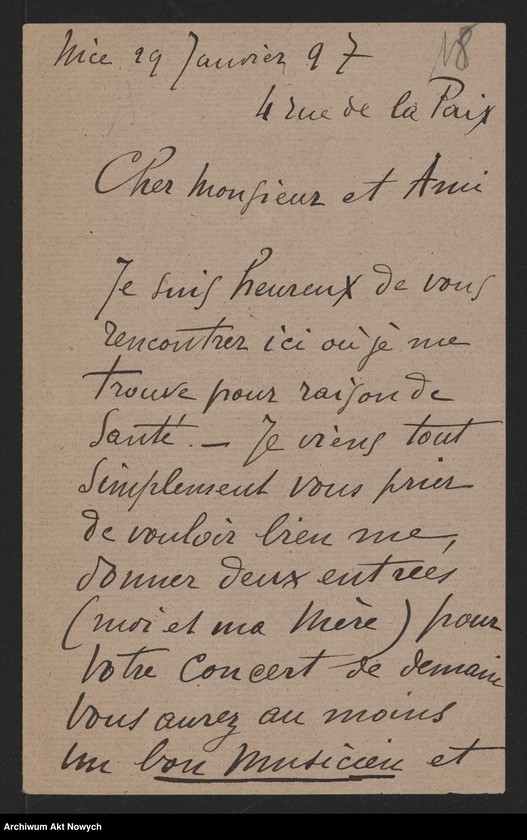 18
Nice 29 Janvier 97
4 rue de la Paix
Cher Monsieur et Ami
Je suis heureux de vous
rencontrer ici où je me
trouve pour raison de
Santé. — Je viens tout
Simplement vous prier
de vouloir bien me,
donner deux entrées
(moi et ma Mère) pour
Votre Concert de demain
Vous aurez au moins
un bon Musicien et
Archiwum Akt Nowych